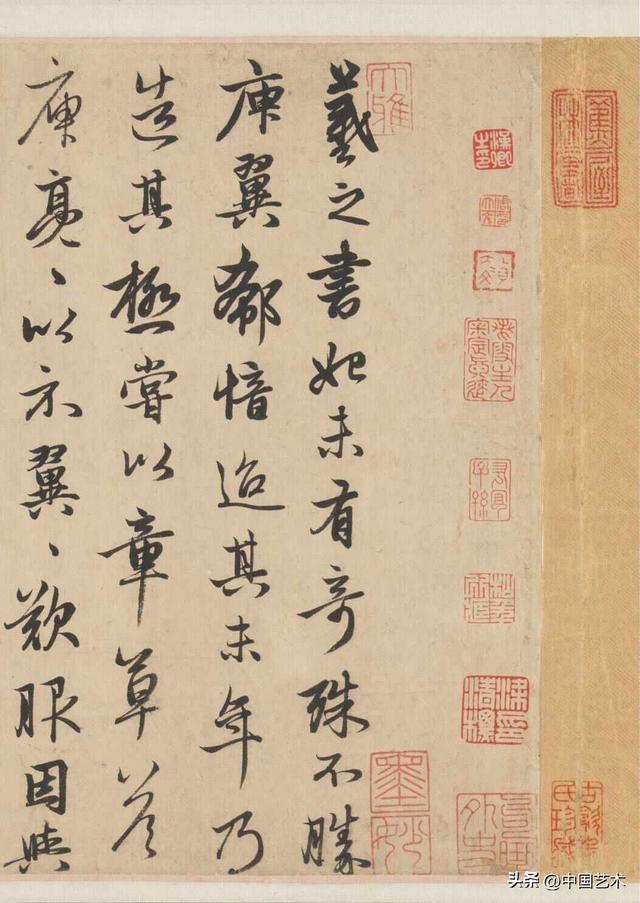 大雅
墨妙
羲之書始未有奇殊不勝
庾翼郗愔迨其末年乃
造其極嘗以章草答
庾亮、以示翼、歎服因與
头条 @中国艺术